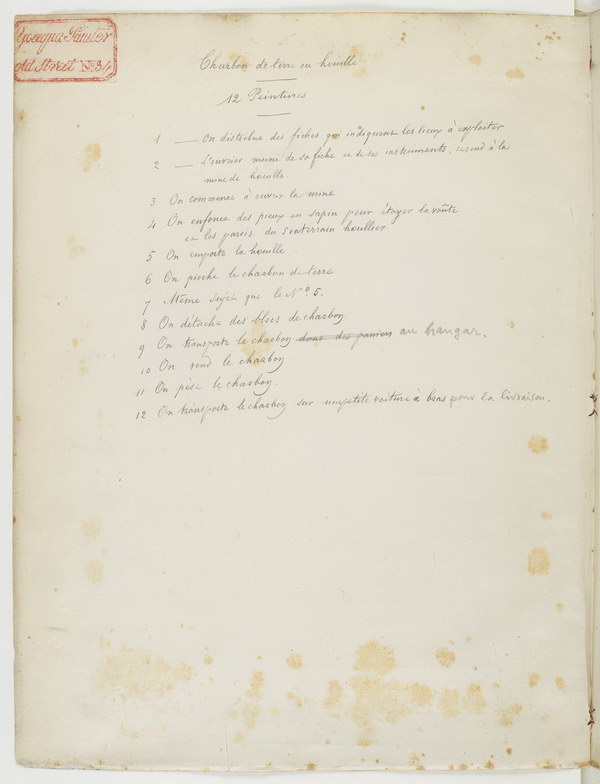 Yoeequa Painter
old Street No 34
Charbon de terre ou houille
12 Peintures
1 — On distribue des fiches qui indiquent les lieux à exploiter
2 — L'ouvrier muni de sa fiche et de ses instruments, descend à la
mine de houille
3 On commence à ouvrir la mine
4 On enfonce des pieux en sapin pour étayer la voûte
et les parois du souterrain houillier.
5 On emporte la houille.
6 On pioche le charbon de terre
7 Même sujet que le No 5.
8 On détache des blocs de charbon.
9 On transporte le charbon dans des paniers au hangar.
10 On vend le charbon.
11 On pèse le charbon.
12 On transporte le charbon sur une petite voiture à bras pour la livraison.